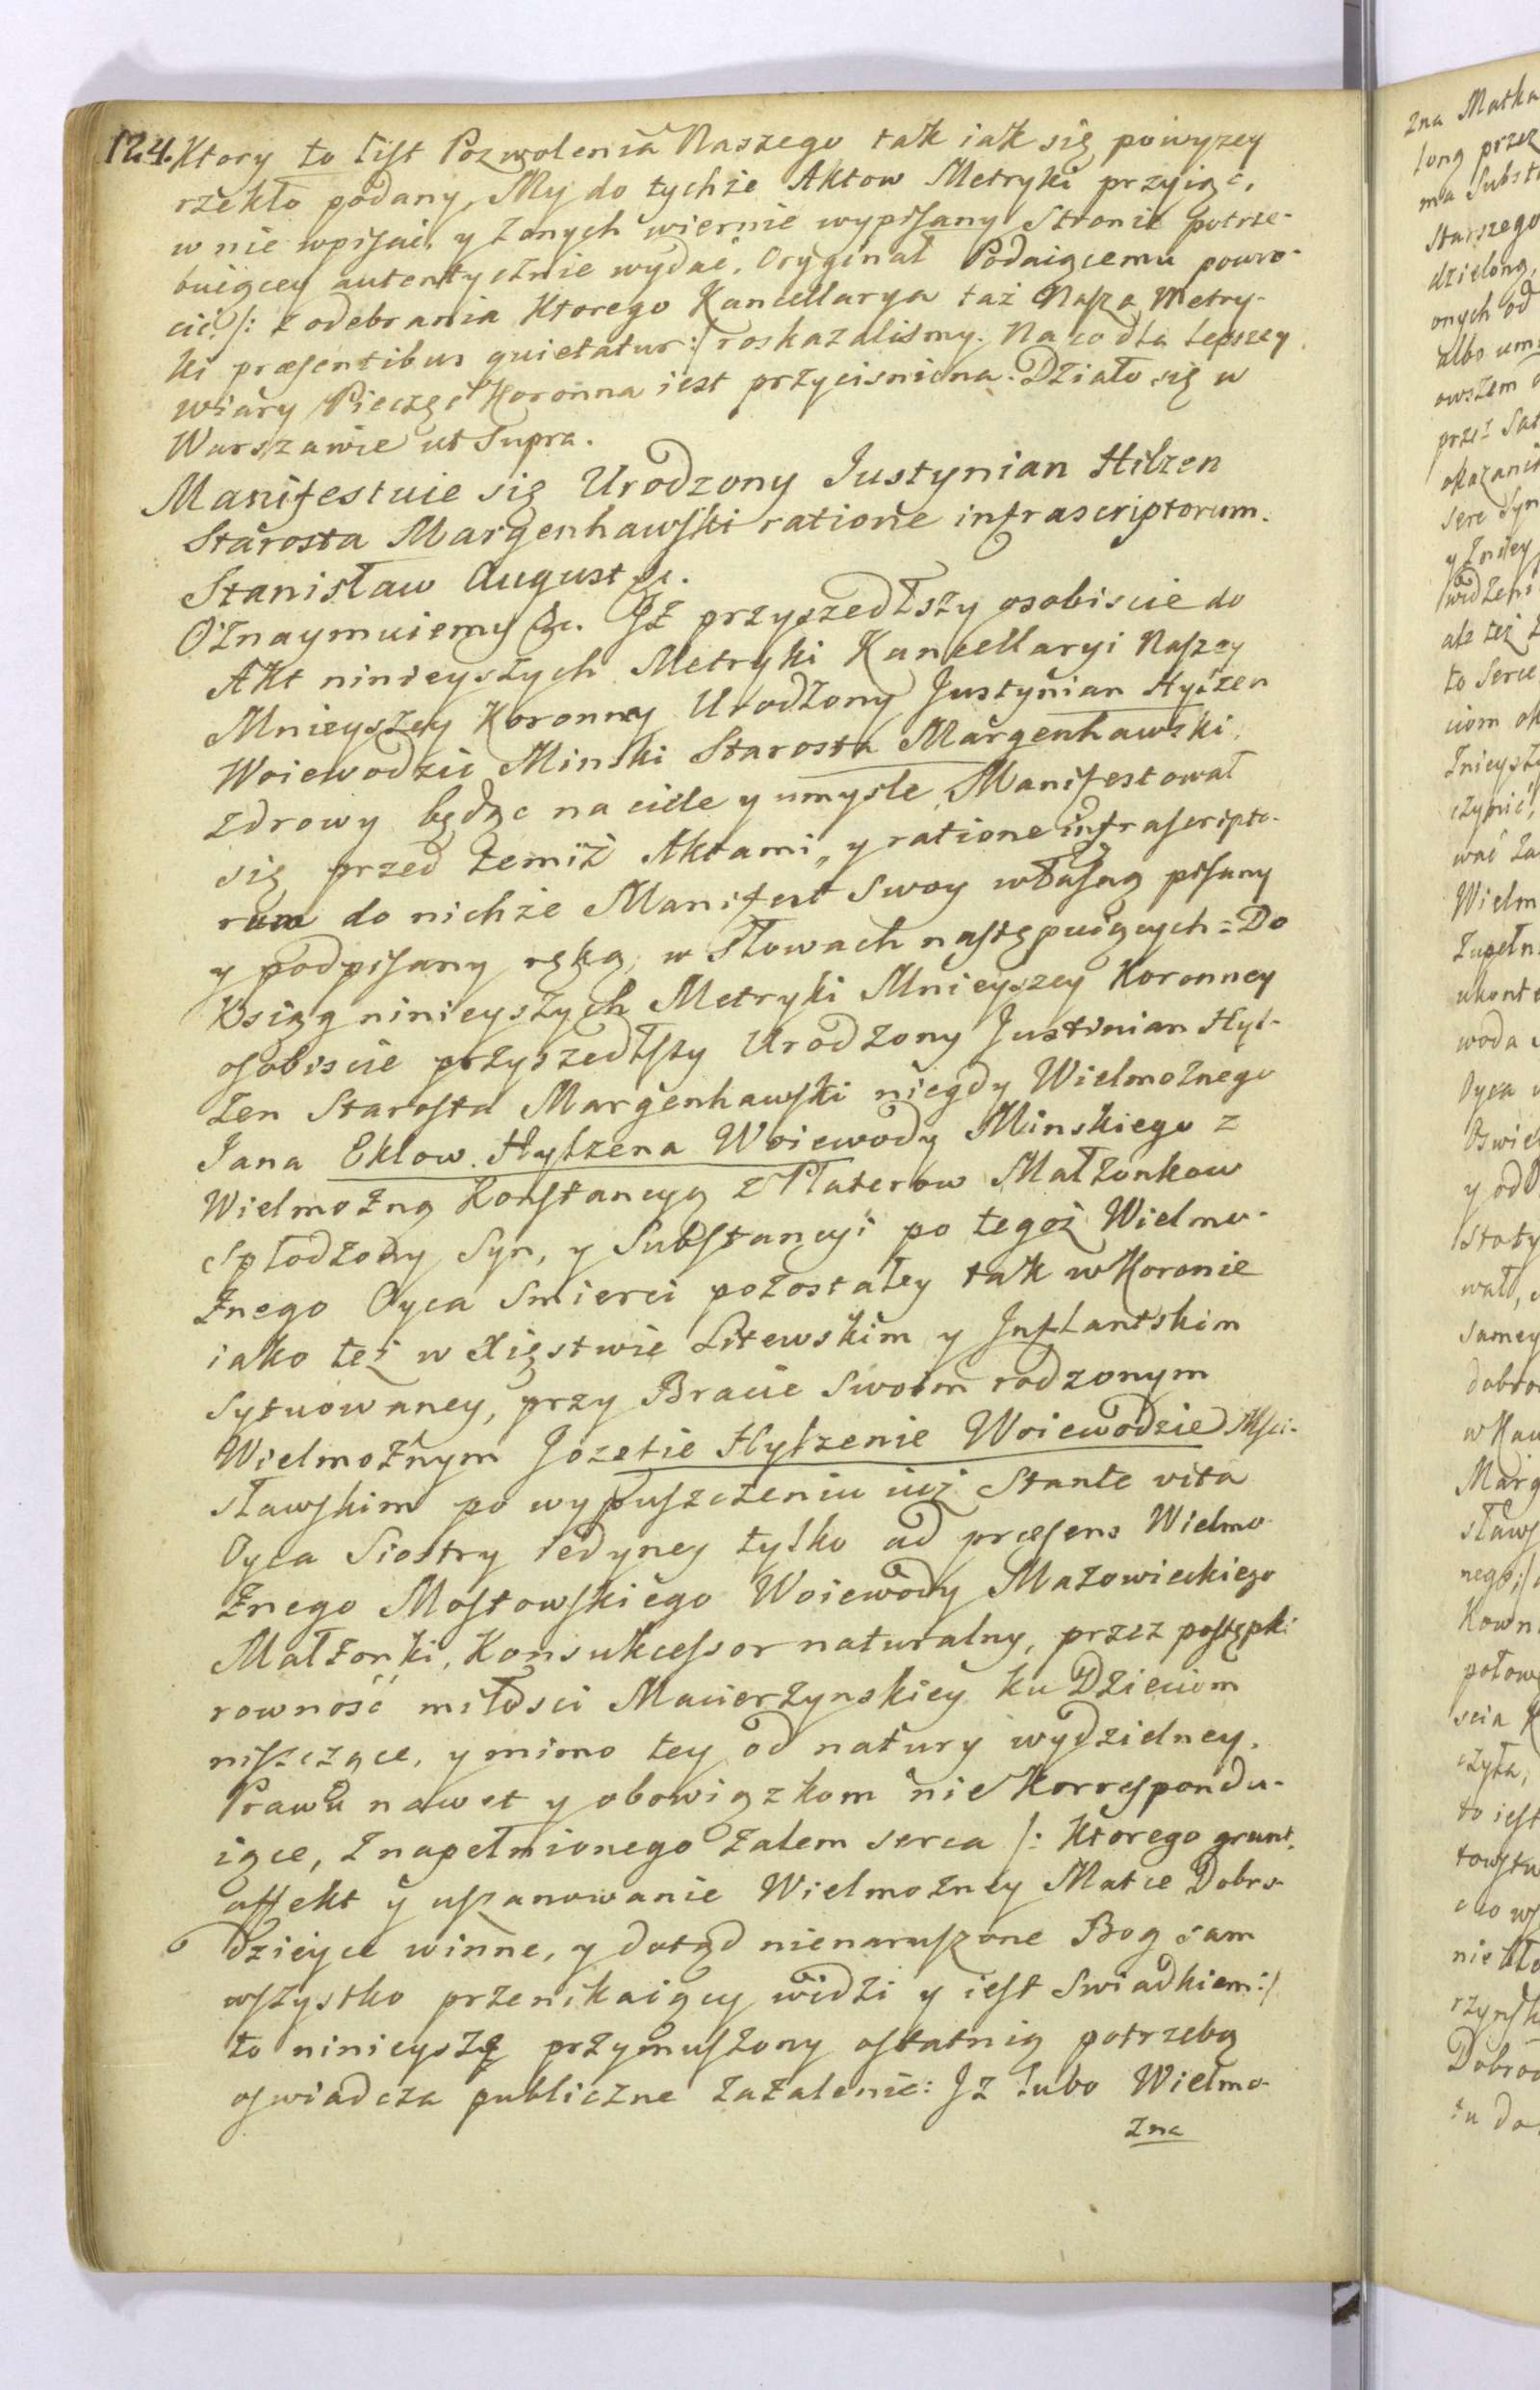 124. Ktory to List Pozwolenia Naszego tak iak się powyzey
rzekło podany, My do tychże Aktow Metryki przyiąc,
w nie wpisać, y z onych wiernie wypisany Stronie potrze-
buiącey autentycznie wydać, Oryginał Podaiącemu powro-
cić /: z odebrania Ktorego Kancellarya taż Nasza Metry-
ki præsentibus quietatur :/ roskazalismy. Na co dla lepszey
wiary Pieczęć Koronna iest przycisniona. Działo się w
Warszawie ut Supra.
Manifestuie się Urodzony Justynian Hilzen
Starosta Margenhawski ratione infrascriptorum.
Stanisław August &c.
Oznaymuiemy &c. Iż przyszedłszy osobiscie do
Akt ninieyszych Metryki Kancellaryi Naszey
Mnieyszey Koronney Urodzony Justynian Hylzen
Woiewodzic Minski Starosta Margenhawski,
zdrowy będąc na ciele y umysle, Manifestował
się przed temiż Aktami, y ratione infrascripto-
rum do nichże Manifest swoy własną pisany
y podpisany ręką, w słowach następuiących = Do
Ksiąg ninieyszych Metryki Mnieyszey Koronney
osobiscie przyszedłszy Urodzony Justinian Hyl-
zen Starosta Margenhawski niegdy Wielmożnego
Jana Eklow Hylzena Woiewody Minskiego z
Wielmożną Konstancyą z Platerow Małżonkow
spłodzony Syn, y Substancyi po tegoż Wielmo-
żnego Oyca Smierci pozostałey tak w Koronie
iako też w Xięstwie Litewskim y Inflantskim
sytuowaney, przy Bracie swoim rodzonym
Wielmożnym Jozefie Hylzenie Woiewodzie Msci-
sławskim po wypuszczeniu iuż Stante vita
Oyca Siostry iedyney tylko ad præsens Wielmo-
żnego Mostowskiego Woiewody Mazowieckiego
Małżonki, Konsukcessor naturalny, przez postępki
rowność miłosci Macierzynskiey ku Dzieciom
niszczące, y mimo tey od natury wydzielney,
Prawu nawet y obowiązkom nie Korrespondu-
iące, z napełnionego żalem serca /: Ktorego grunt,
affekt y uszanowanie Wielmożney Matce Dobro-
dzieyce winne, y dotąd nienaruszone Bog sam
wszystko przenikaiący widzi y iest Swiadkiem :/
to ninieyszę przymuszony ostatnią potrzebą
oswiadcza publiczne zażalenie: Iż lubo Wielmo-
żna